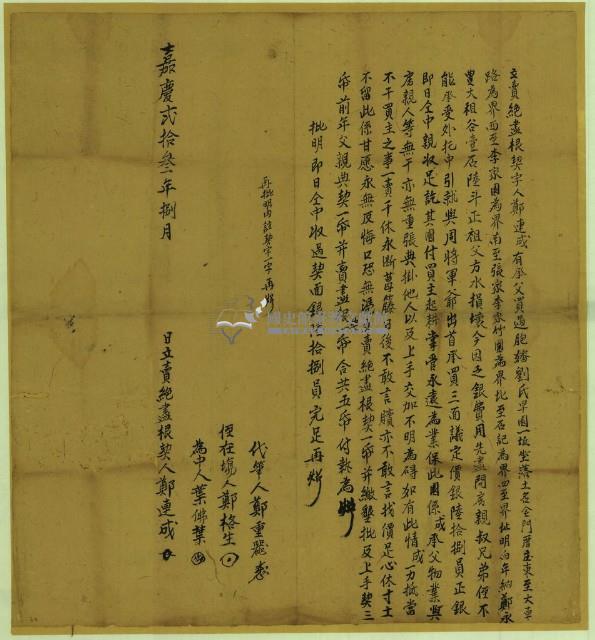 立賣絕盡根契字人鄭連成有承父買過胞嬸劉氏旱園一坵坐落土名金門厝庄東至大車
路為界西至李家園為界南至張家李家竹圍為界北至石記為界四至界址明白年納鄭永
豐大租谷壹石陸斗正祖父方水損壞今因乏銀費用先盡問房親叔兄弟侄不
能承受外托中引就與周將軍爺出首承買三面議定價銀陸拾捌員正銀
即日仝中親收足訖其園付買主起耕掌管永遠為業保此園係成承父物業與
房親人等無干亦無重張典掛他人以及上手交加不明為碍如有此情成一力抵當
不干買主之事一賣千休永斷葛藤日後不敢言贖亦不敢言找價足心休寸土
不留此係甘愿永無反悔口恐無憑立賣絕盡根契一帋并繳墾批及上手契三
帋前年父親典契一帋并賣盡根契一帋合共五帋付執為炤
批明即日仝中收過契面銀陸拾捌員完足再炤
再批明內註契字一字再炤
代筆人鄭重器
侄在塲人鄭格生
為中人葉佛葉
嘉慶貳拾叁年捌月 日立賣絕盡根契人鄭連成
國史館臺灣文獻館